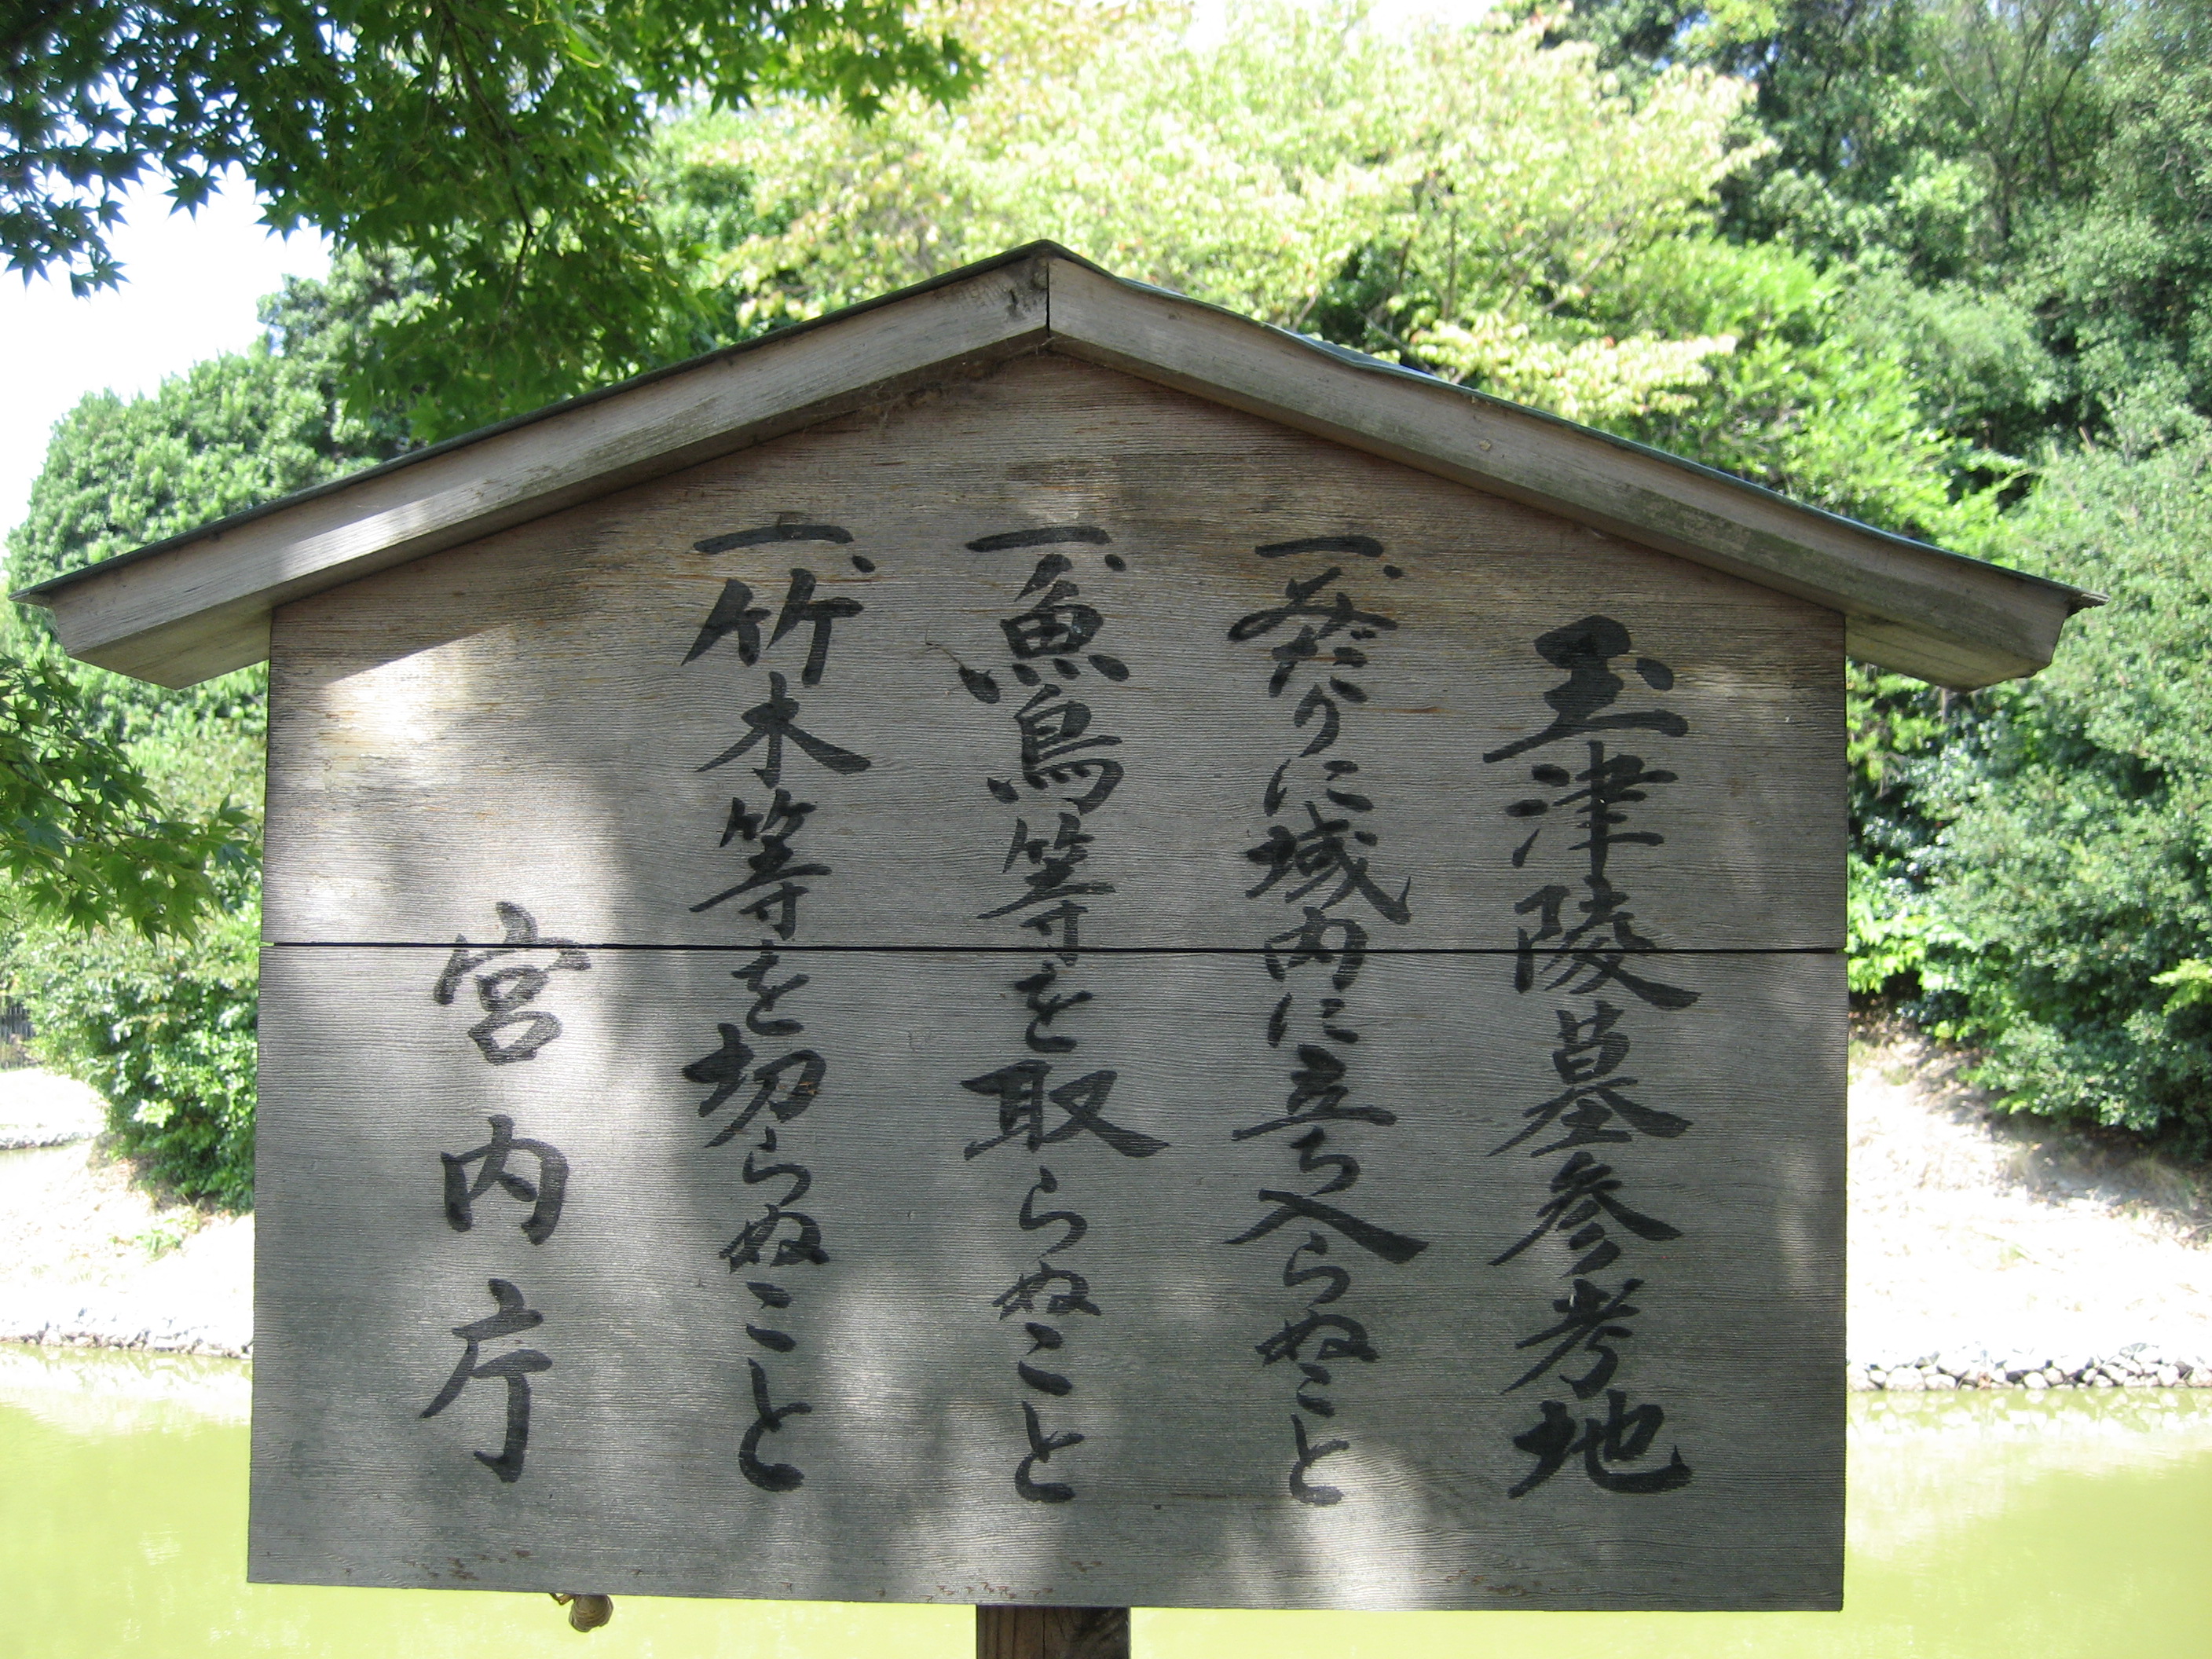 玉津陵墓参考地
一、みだりに域内に立ち入らぬこと
一、魚鳥等を取らぬこと
一、竹木等を切らぬこと
宮内庁